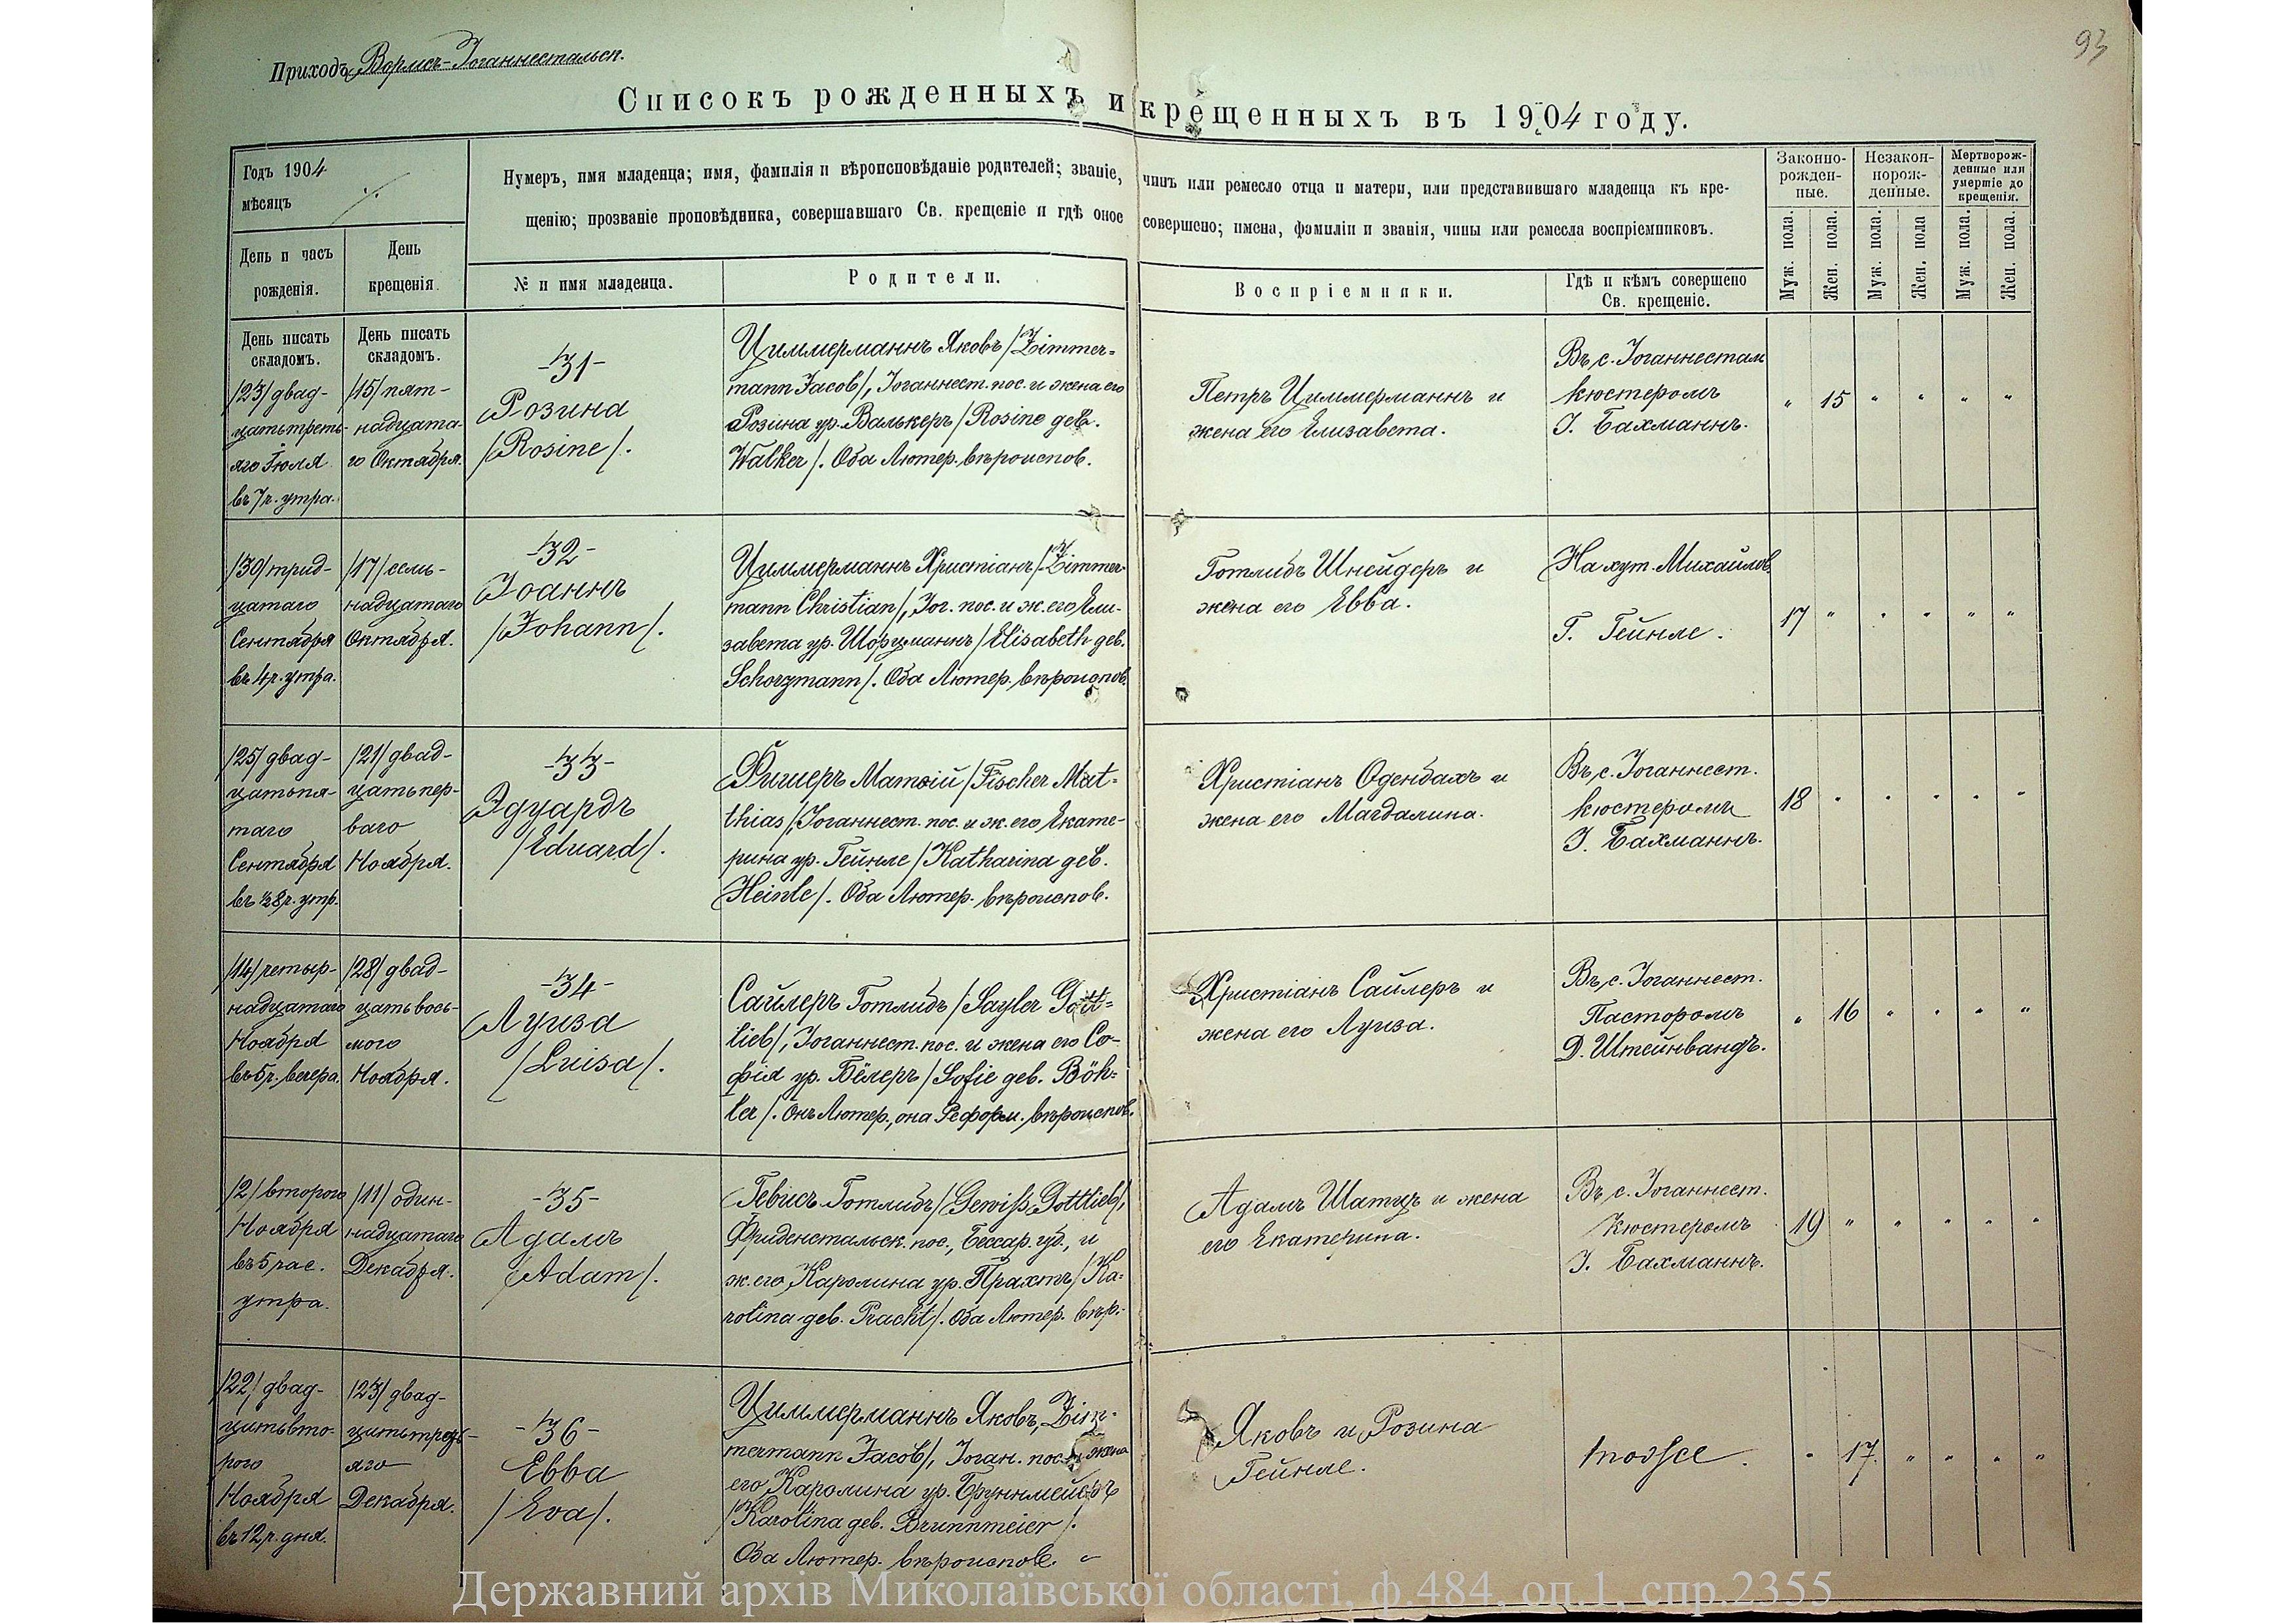 93
Приходъ Вормсъ-Іоганнестальск.
Списокъ рожденныхъ и крещенныхъ въ 1904 году.
Годъ 1904
мѣсяцъ
Нумеръ, имя младенца; имя, фамилія и вѣроисповѣданіе родителей; званіе, чинъ или ремесло отца и матери, или представившаго младенца къ кре-
щенію; прозваніе проповѣдника, совершавшаго Св. крещеніе и гдѣ оное совершено; имена, фамиліи и званія, чины или ремесла воспріемниковъ.
Законно-
рожден-
ные.
Незакон-
норож-
денные.
Мертворож-
денные или
умершіе до
крещенія.
День и часъ
рожденія.
День
крещенія.
№ и имя младенца.
Родители.
Воспріемники.
Гдѣ и кѣмъ совершено
Св. крещеніе.
Муж. пола.
Жен. пола.
Муж. пола.
Жен. пола
Муж. пола.
Жен. пола.
День писать
складомъ.
День писать
складомъ.
/23/ двад-
цатьтреть-
яго Іюля
въ 7 ч. утра.
/15/ пят-
надцата-
го Октября.
-31-
Розина
/Rosine/.
Циммерманнъ Яковъ /Zimmer=
mann Jacob/, Іоганнест. пос. и жена его
Розина ур. Валькеръ /Rosine geb.
Walker/. Оба Лютер. вѣроиспов.
Петръ Циммерманнъ и
жена его Елизавета.
Въ с. Іоганнестал
кюстеромъ
І. Бахманнъ.
" 15 " " " "
/30/ трид-
цатаго
Сентября
въ 4 ч. утра.
/17/ семь-
надцатаго
Октября.
-32-
Іоаннъ
/Johann/.
Циммерманнъ Христіанъ /Zimmer-
mann Christian/, Іог. пос. и ж. его Ели-
завета ур. Шорцманнъ /Elisabeth geb.
Schorzmann/. Оба Лютер. вѣроиспов.
Готлибъ Шнейдеръ и
жена его Евва.
На хут. Михайлов.
Г. Гейнле.
17 " " " " "
/25/ двад-
цатьпя-
таго
Сентября
въ ½8 ч. утр.
/21/ двад-
цатьпер-
ваго
Ноября.
-33-
Эдуардъ
/Eduard/.
Фишеръ Матѳій /Fischer Mat=
thias/, Іоганнест. пос. и ж. его Екате-
рина ур. Гейнле /Katharina geb.
Heinle/. Оба Лютер. вѣроиспов.
Христіанъ Оденбахъ и
жена его Магдалина.
Въ с. Іоганнест.
кюстеромъ
І. Бахманнъ.
18 " " " " "
/14/ четыр-
надцатаго
Ноября
въ 5 ч. вечера.
/28/ двад-
цать вось-
мого
Ноября.
-34-
Луиза
/Luisa/.
Сайлеръ Готлибъ /Sayler Gott=
lieb/, Іоганнест. пос. и жена его Со-
фія ур. Бёлеръ /Sofie geb. Böh=
ler/. Онъ Лютер., она Реформ. вѣроиспов.
Христіанъ Сайлеръ и
жена его Луиза.
Въ с. Іоганнест.
Пасторомъ
Д. Штейнвандъ.
" 16 " " " "
/2/ второго
Ноября
въ 5 час.
утра.
/11/ один-
надцатаго
Декабря.
-35-
Адамъ
/Adam/.
Гевисъ Готлибъ /Gewiß Gottlieb/,
Фриденстальск. пос., Бессар. губ., и
ж. его Каролина ур. Прахтъ /Ka=
rolina geb. Pracht/. Оба Лютер. вѣр.
Адамъ Шатцъ и жена
его Екатерина.
Въ с. Іоганнест.
Кюстеромъ
І. Бахманнъ.
19 " " " " "
/22/ двад-
цатьвто-
рого
Ноября
въ 12 ч. дня.
/23/ двад-
цатьтреть-
яго
Декабря.
-36-
Евва
/Eva/.
Циммерманнъ Яковъ, Zim-
mermann Jacob/, Іоган. пос. и жена
его Каролина ур. Бруннмейеръ
/Karolina geb. Brunnmeier/.
Оба Лютер. вѣроиспов.
Яковъ и Розина
Гейнле.
тоже.
" 17 " " " "
Державний архів Миколаївської області, ф.484, оп.1, спр.2355